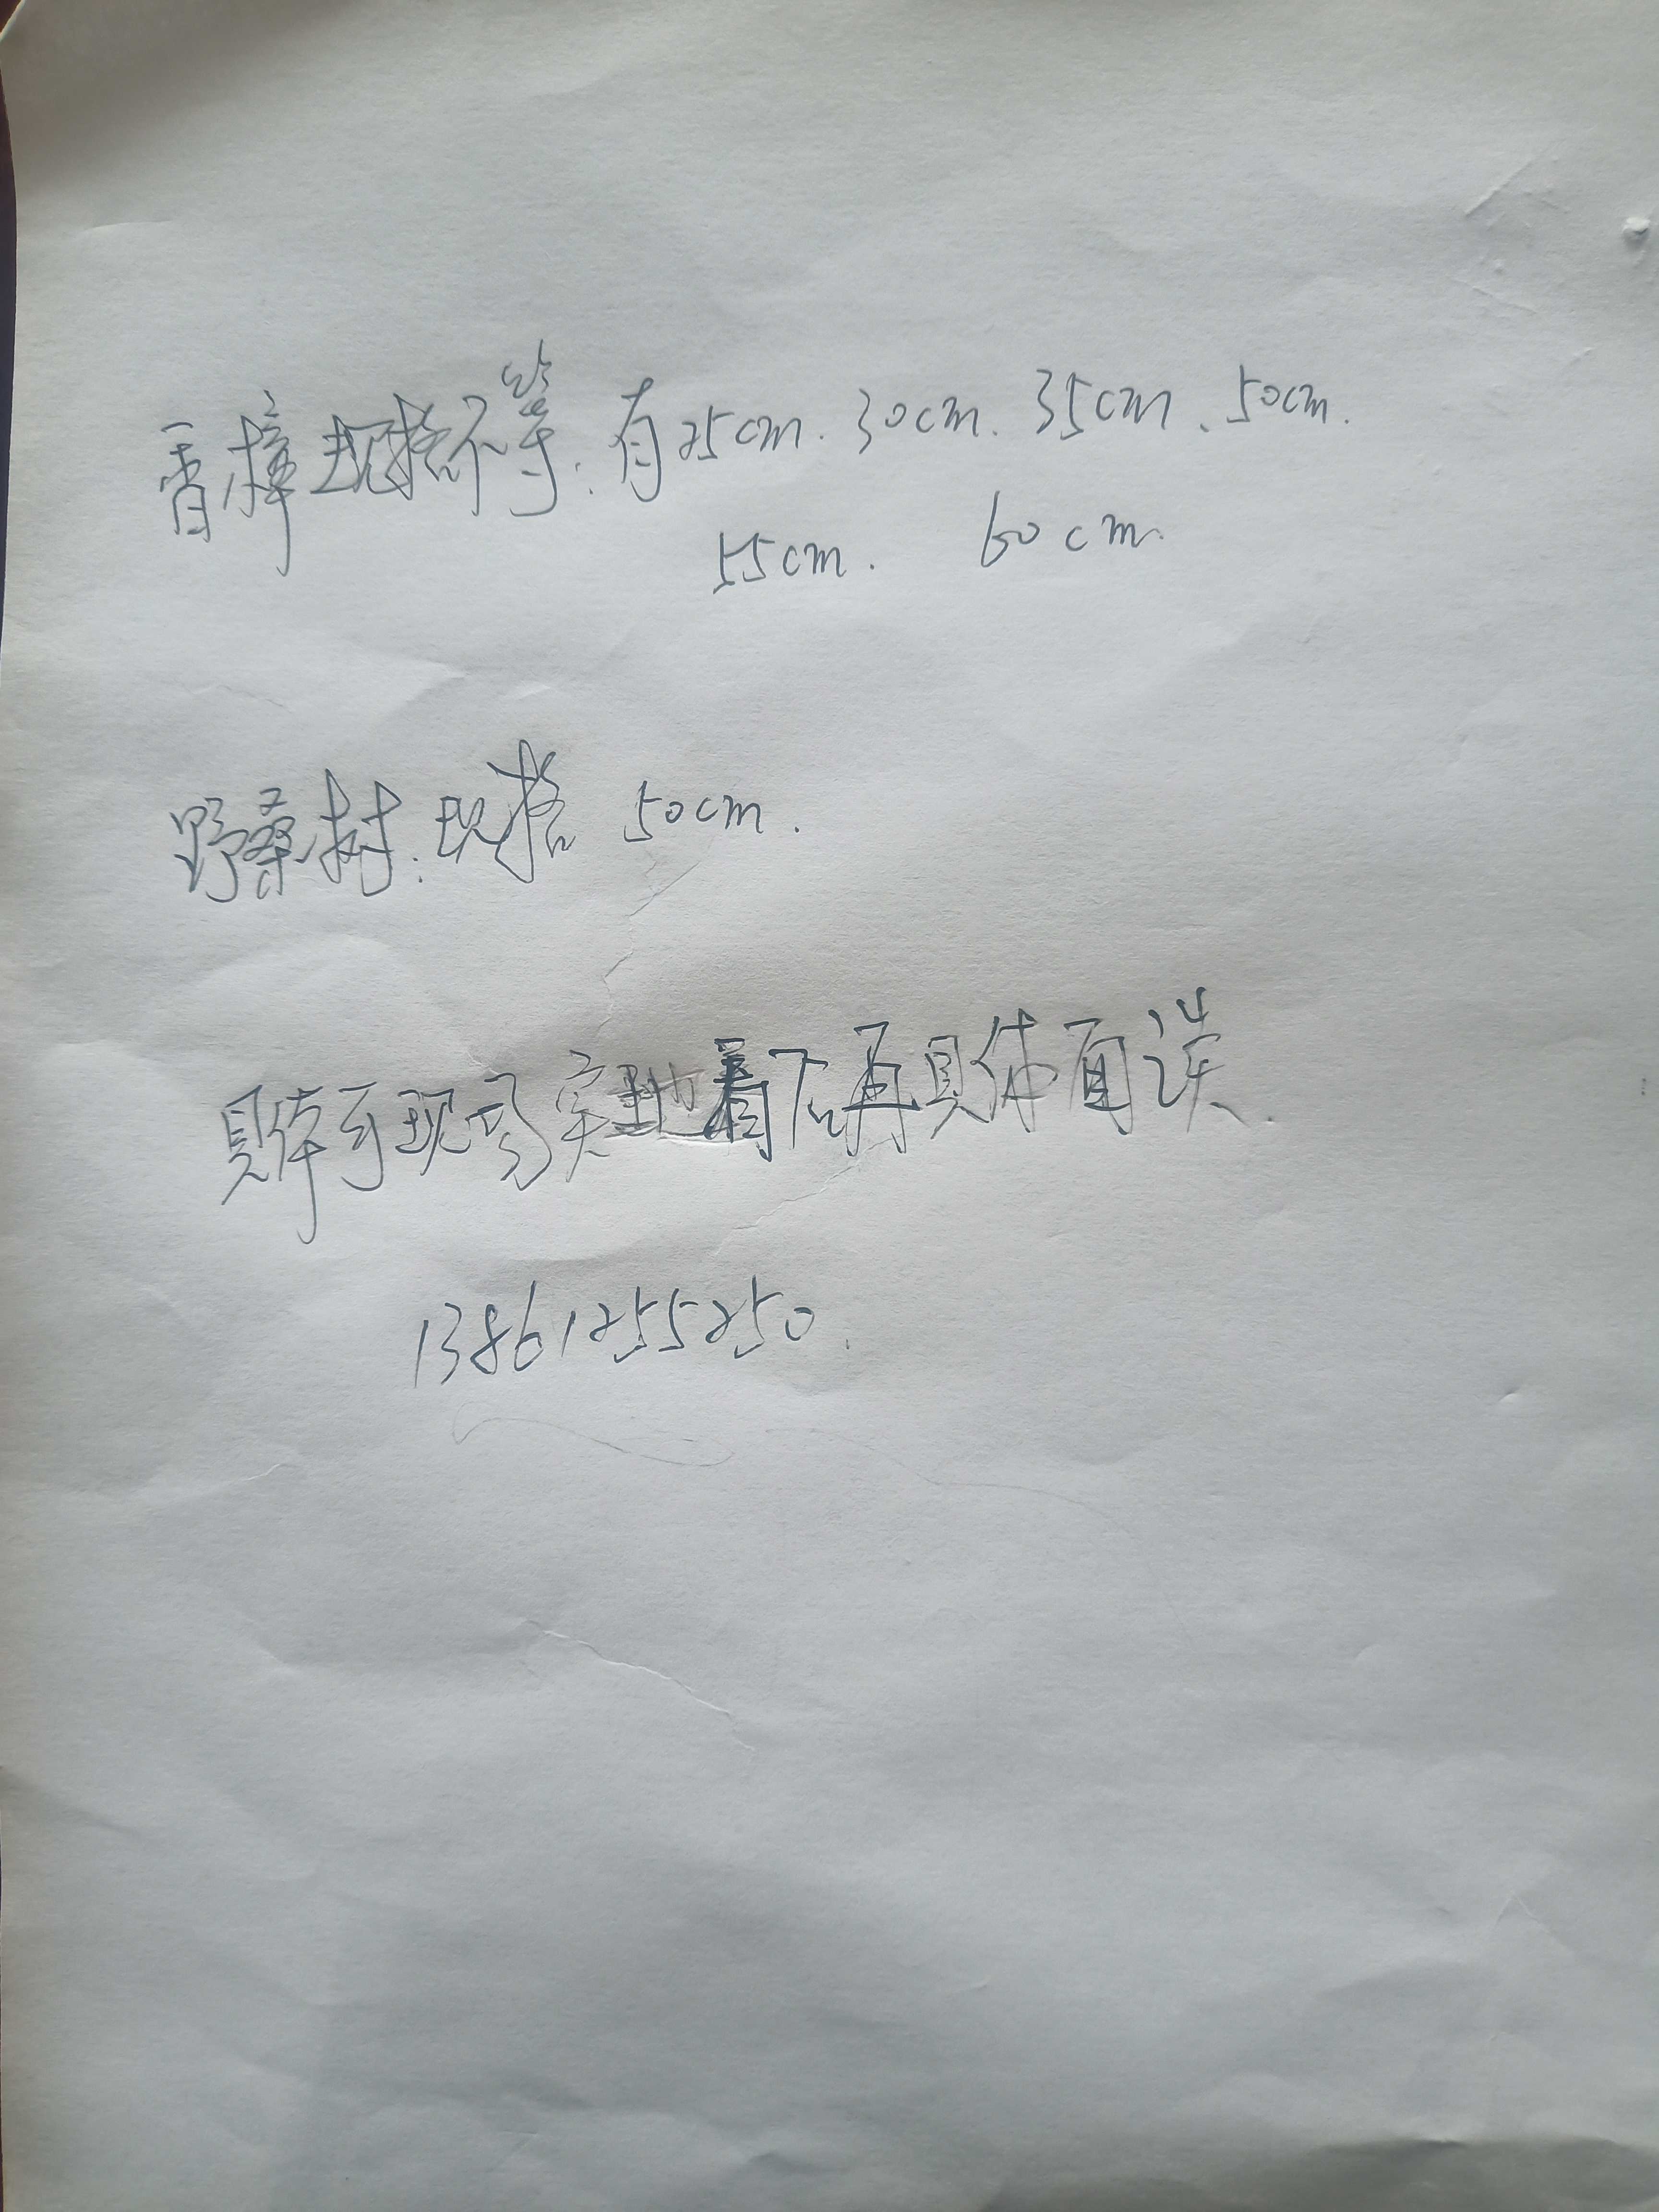 香樟规格不等:有25cm.30cm.35cm、50cm.
55cm. 60cm.
野桑树:规格 50cm.
具体可现场实地看下后再具体面谈.
13861255250.